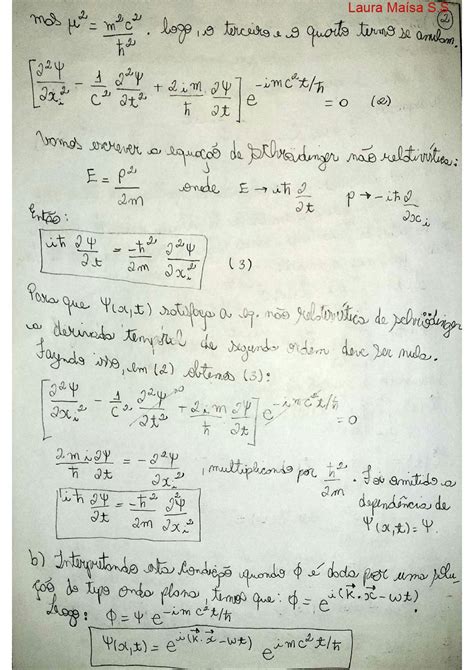 Laura Maisa S.S
2
mas μ² = m²c²/ħ² . logo, o terceiro e o quarto termo se anulam.
[∂²Ψ/∂xᵢ² - 1/c² ∂²Ψ/∂t² + 2im/ħ ∂Ψ/∂t] e^(-imc²t/ħ) = 0 (2)
Vamos escrever a equação de Schrödinger não relativística:
E = p²/2m onde E → iħ ∂/∂t p → -iħ ∂/∂xᵢ
Então:
iħ ∂Ψ/∂t = -ħ²/2m ∂²Ψ/∂xᵢ² (3)
Para que Ψ(x,t) satisfaça a eq. não relativística de schrödinger
a derivada temporal de segunda ordem deve ser nula.
Fazendo isso, em (2) obtemos (3):
[∂²Ψ/∂xᵢ² - 1/c² ∂²Ψ/∂t² + 2im/ħ ∂Ψ/∂t] e^(-imc²t/ħ) = 0
2mi/ħ ∂Ψ/∂t = -∂²Ψ/∂xᵢ² , multiplicando por ħ²/2m . Foi omitido a
dependência de
iħ ∂Ψ/∂t = -ħ²/2m ∂²Ψ/∂xᵢ²
Ψ(x,t) = Ψ.
b) Interpretando esta condição quando ϕ é dada por uma solu
ção do tipo onda plana, temos que: ϕ = e^(i(k⃗·x⃗-wt))
Logo: ϕ = Ψ e^(-imc²t/ħ)
Ψ(x,t) = e^(i(k⃗·x⃗-wt)) e^(imc²t/ħ)